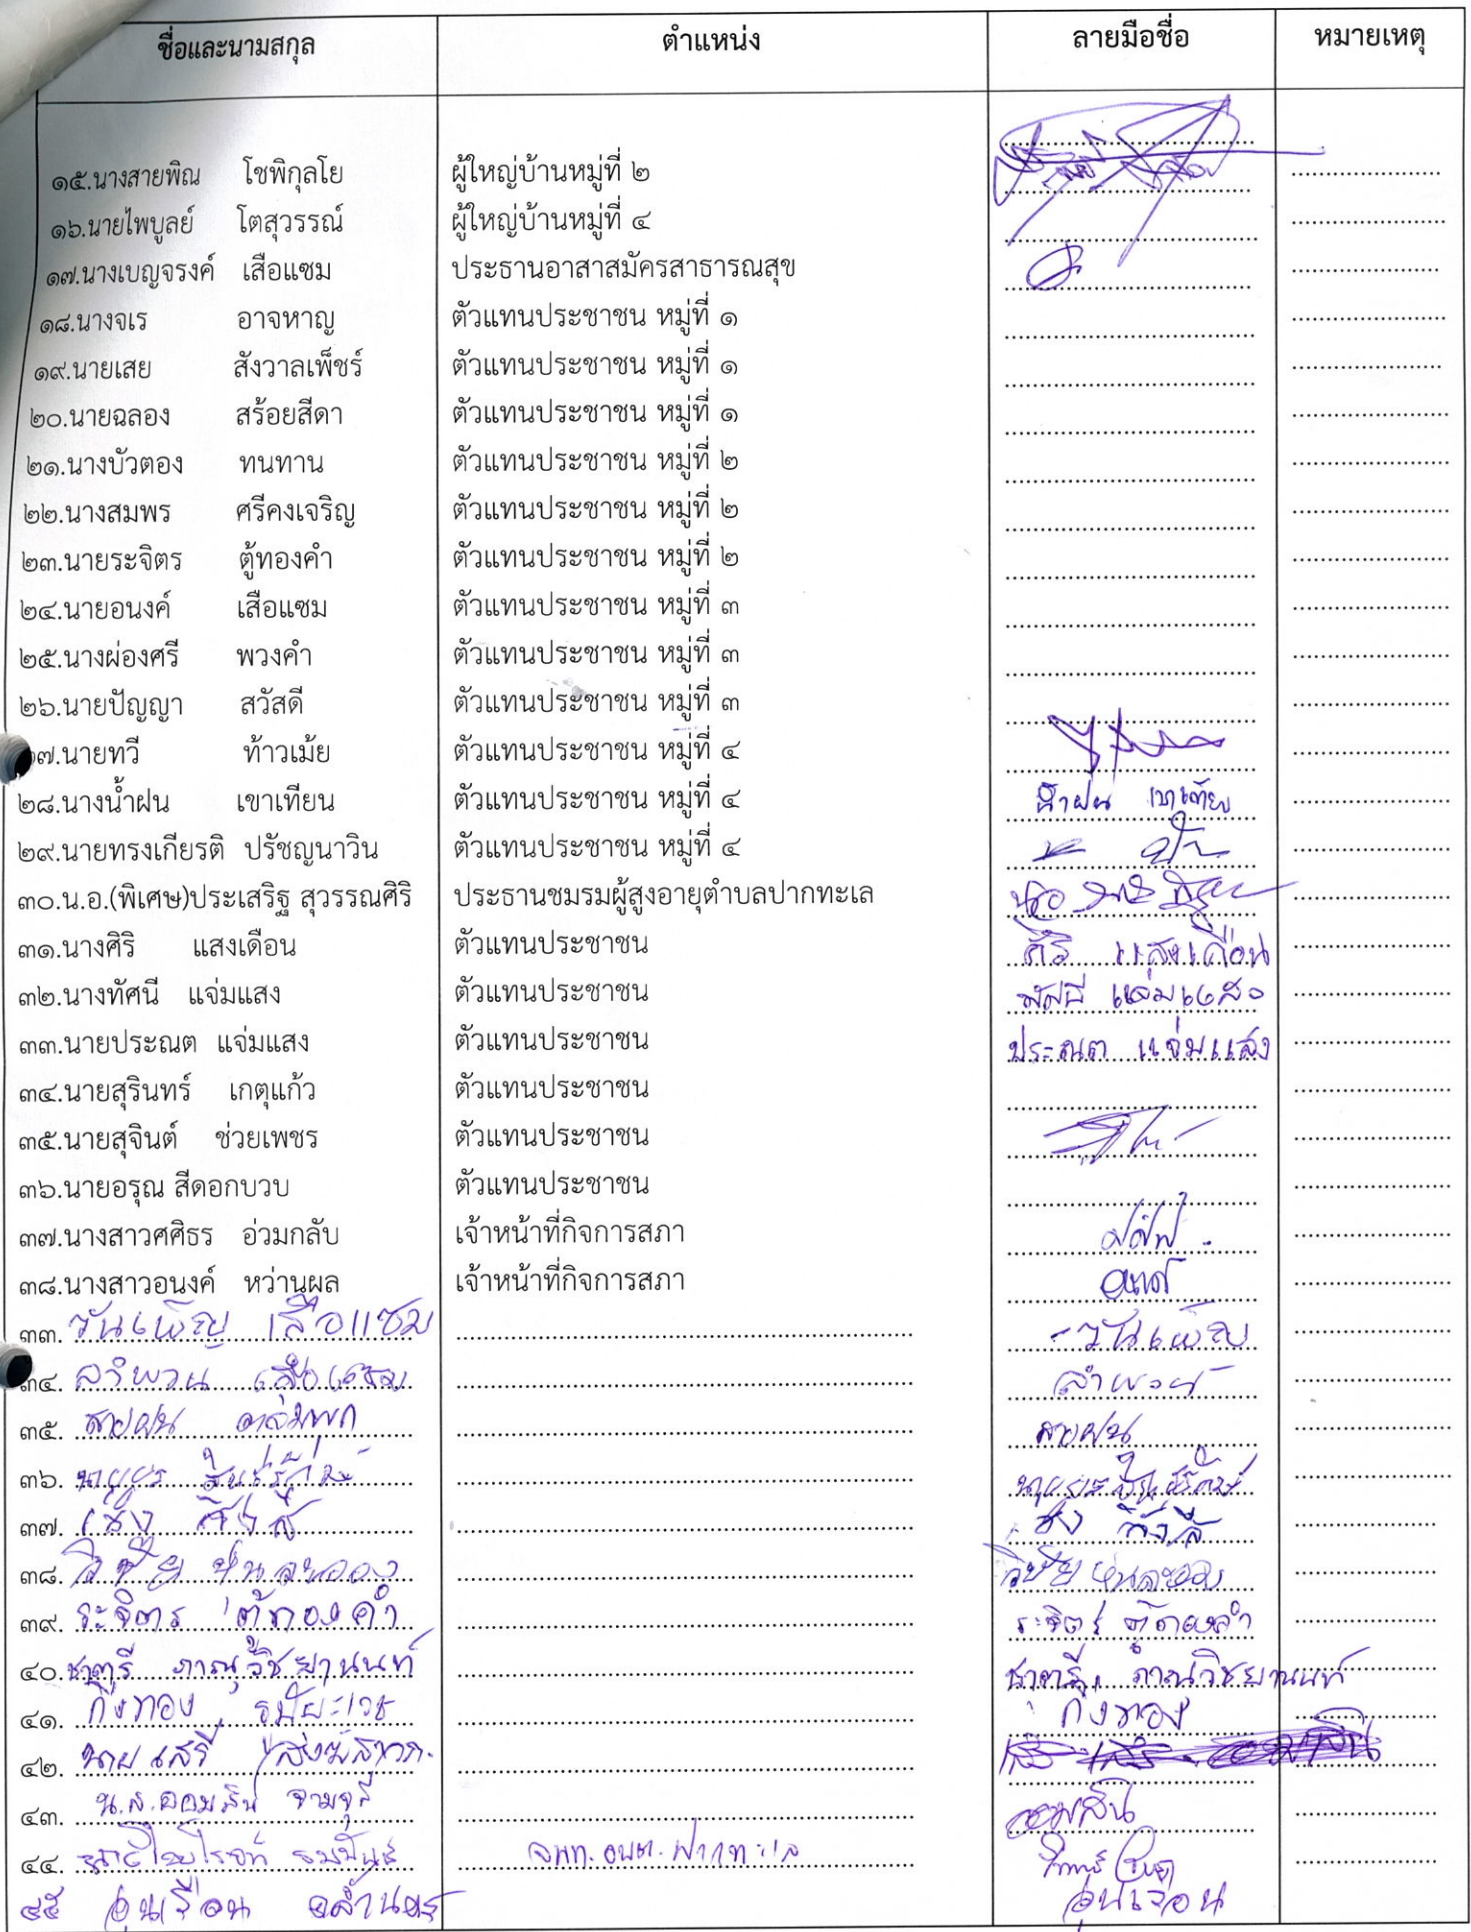 ชื่อและนามสกุล ตำแหน่ง ลายมือชื่อ หมายเหตุ
๑๕.นางสายพิณ โชพิกุลโย ผู้ใหญ่บ้านหมู่ที่ ๒
๑๖.นายไพบูลย์ โตสุวรรณ์ ผู้ใหญ่บ้านหมู่ที่ ๔
๑๗.นางเบญจรงค์ เสือแซม ประธานอาสาสมัครสาธารณสุข
๑๘.นางจเร อาจหาญ ตัวแทนประชาชน หมู่ที่ ๑
๑๙.นายเสย สังวาลเพ็ชร์ ตัวแทนประชาชน หมู่ที่ ๑
๒๐.นายฉลอง สร้อยสีดา ตัวแทนประชาชน หมู่ที่ ๑
๒๑.นางบัวตอง ทนทาน ตัวแทนประชาชน หมู่ที่ ๒
๒๒.นางสมพร ศรีคงเจริญ ตัวแทนประชาชน หมู่ที่ ๒
๒๓.นายระจิตร ตู้ทองคำ ตัวแทนประชาชน หมู่ที่ ๒
๒๔.นายอนงค์ เสือแซม ตัวแทนประชาชน หมู่ที่ ๓
๒๕.นางผ่องศรี พวงคำ ตัวแทนประชาชน หมู่ที่ ๓
๒๖.นายปัญญา สวัสดี ตัวแทนประชาชน หมู่ที่ ๓
๗.นายทวี ท้าวเม้ย ตัวแทนประชาชน หมู่ที่ ๔
๒๘.นางน้ำฝน เขาเทียน ตัวแทนประชาชน หมู่ที่ ๔ น้ำฝน เขาเทียน
๒๙.นายทรงเกียรติ ปรัชญนาวิน ตัวแทนประชาชน หมู่ที่ ๔
๓๐.น.อ.(พิเศษ)ประเสริฐ สุวรรณศิริ ประธานชมรมผู้สูงอายุตำบลปากทะเล
๓๑.นางศิริ แสงเดือน ตัวแทนประชาชน ศิริ แสงเดือน
๓๒.นางทัศนี แจ่มแสง ตัวแทนประชาชน ทัศนี แจ่มแสง
๓๓.นายประณต แจ่มแสง ตัวแทนประชาชน ประณต แจ่มแสง
๓๔.นายสุรินทร์ เกตุแก้ว ตัวแทนประชาชน
๓๕.นายสุจินต์ ช่วยเพชร ตัวแทนประชาชน
๓๖.นายอรุณ สีดอกบวบ ตัวแทนประชาชน
๓๗.นางสาวศศิธร อ่วมกลับ เจ้าหน้าที่กิจการสภา
๓๘.นางสาวอนงค์ หว่านผล เจ้าหน้าที่กิจการสภา อนงค์
๓๓. วันเพ็ญ เสือแซม วันเพ็ญ
๓๔. ลำพวน เสือแซม ลำพวน
๓๕. สายฝน สายฝน
๓๖.
๓๗.
๓๘. วิชัย วิชัย
๓๙. ระจิตร ตู้ทองคำ ระจิตร ตู้ทองคำ
๔๐. ชาตรี ภาณุวิชยานนท์ ชาตรี ภาณุวิชยานนท์
๔๑. กิ่งทอง กิ่งทอง
๔๒. นายเสรี
๔๓. น.ส.ออมสิน จามจุลี ออมสิน
๔๔. จนท. อบต. ปากทะเล
๔๕ อุ่นเรือน อุ่นเรือน